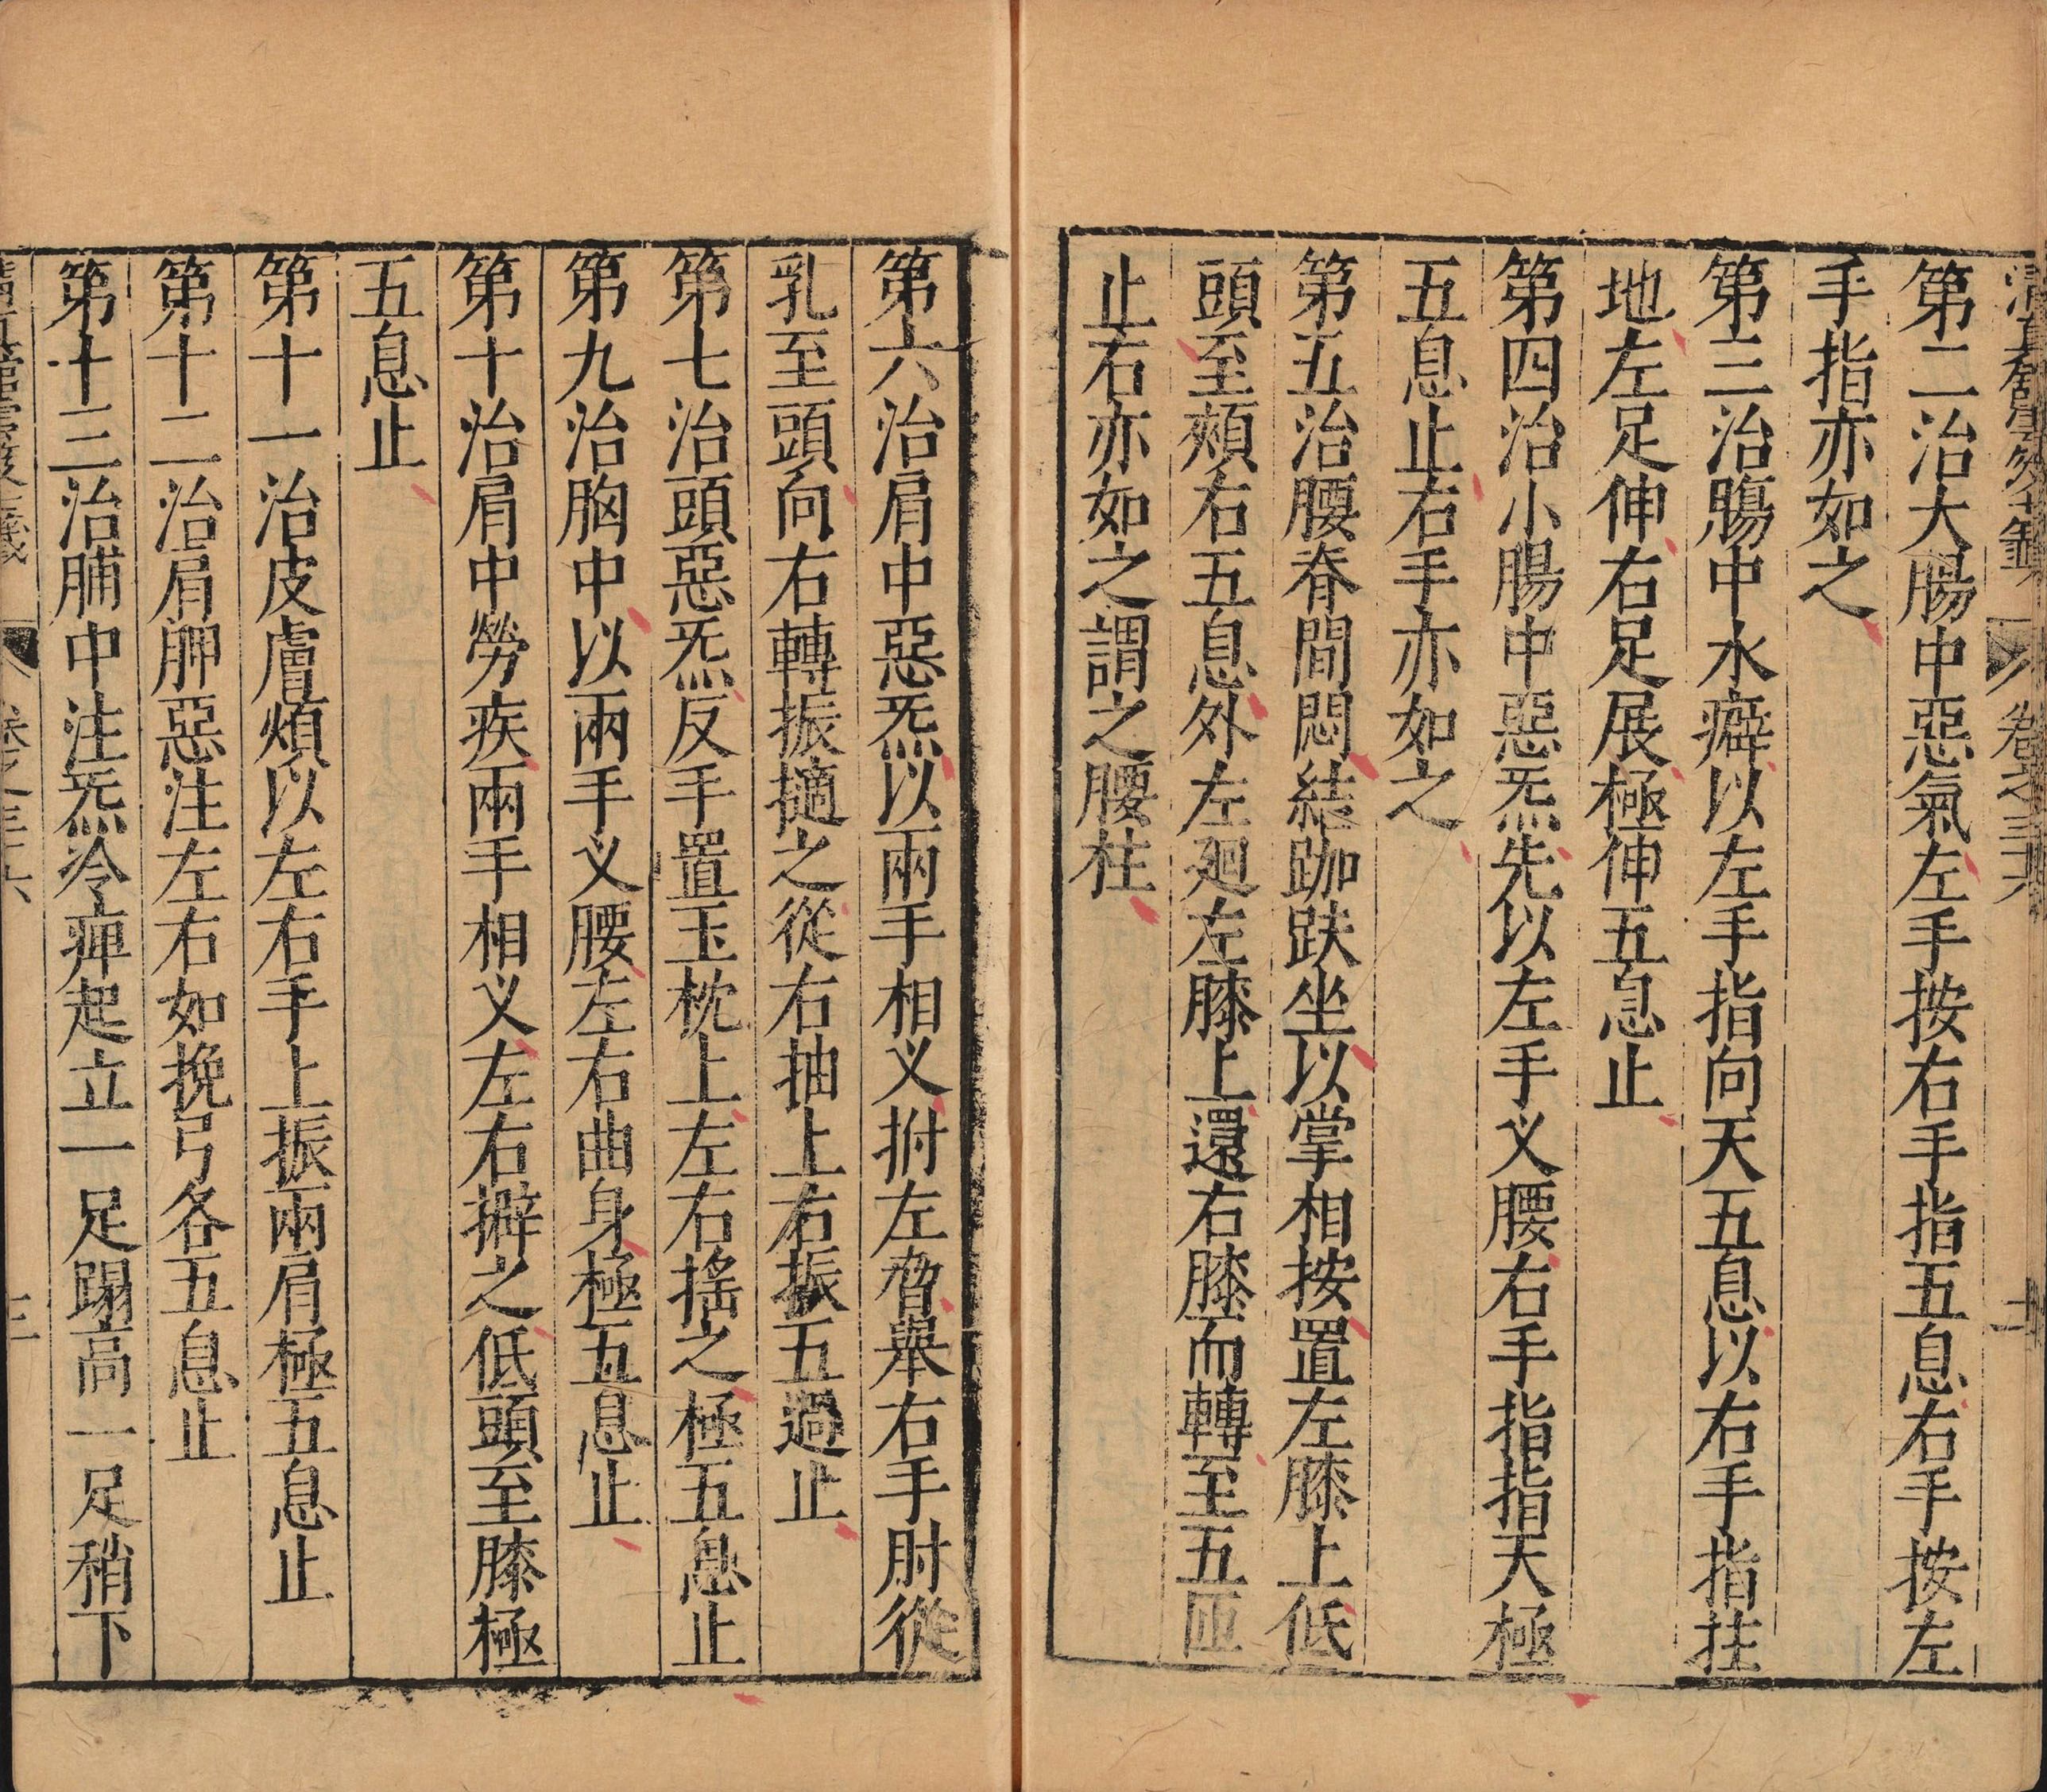 第二治大腸中惡氣左手按右手指五息右手按左
手指亦如之
第三治腸中水癖以左手指向天五息以右手指拄
地左足伸右足展極伸五息止
第四治小腸中惡炁先以左手义腰右手指指天極
五息止右手亦如之
第五治腰脊間悶結跏趺坐以掌相按置左膝上低
頭至頰右五息外左廻左膝上還右膝而轉至五匝
止右亦如之謂之腰柱
第六治肩中惡炁以兩手相义拊左脅舉右手肘從
乳至頭向右轉振擿之從右抽上右振五過止
第七治頭惡炁反手置玉枕上左右搖之極五息止
第九治胸中以兩手义腰左右曲身極五息止
第十治肩中勞疾兩手相义左右擗之低頭至膝極
五息止
第十一治皮膚煩以左右手上振兩肩極五息止
第十二治肩胛惡注左右如挽弓各五息止
第十三治脯中注炁冷痺起立一足蹋高一足稍下